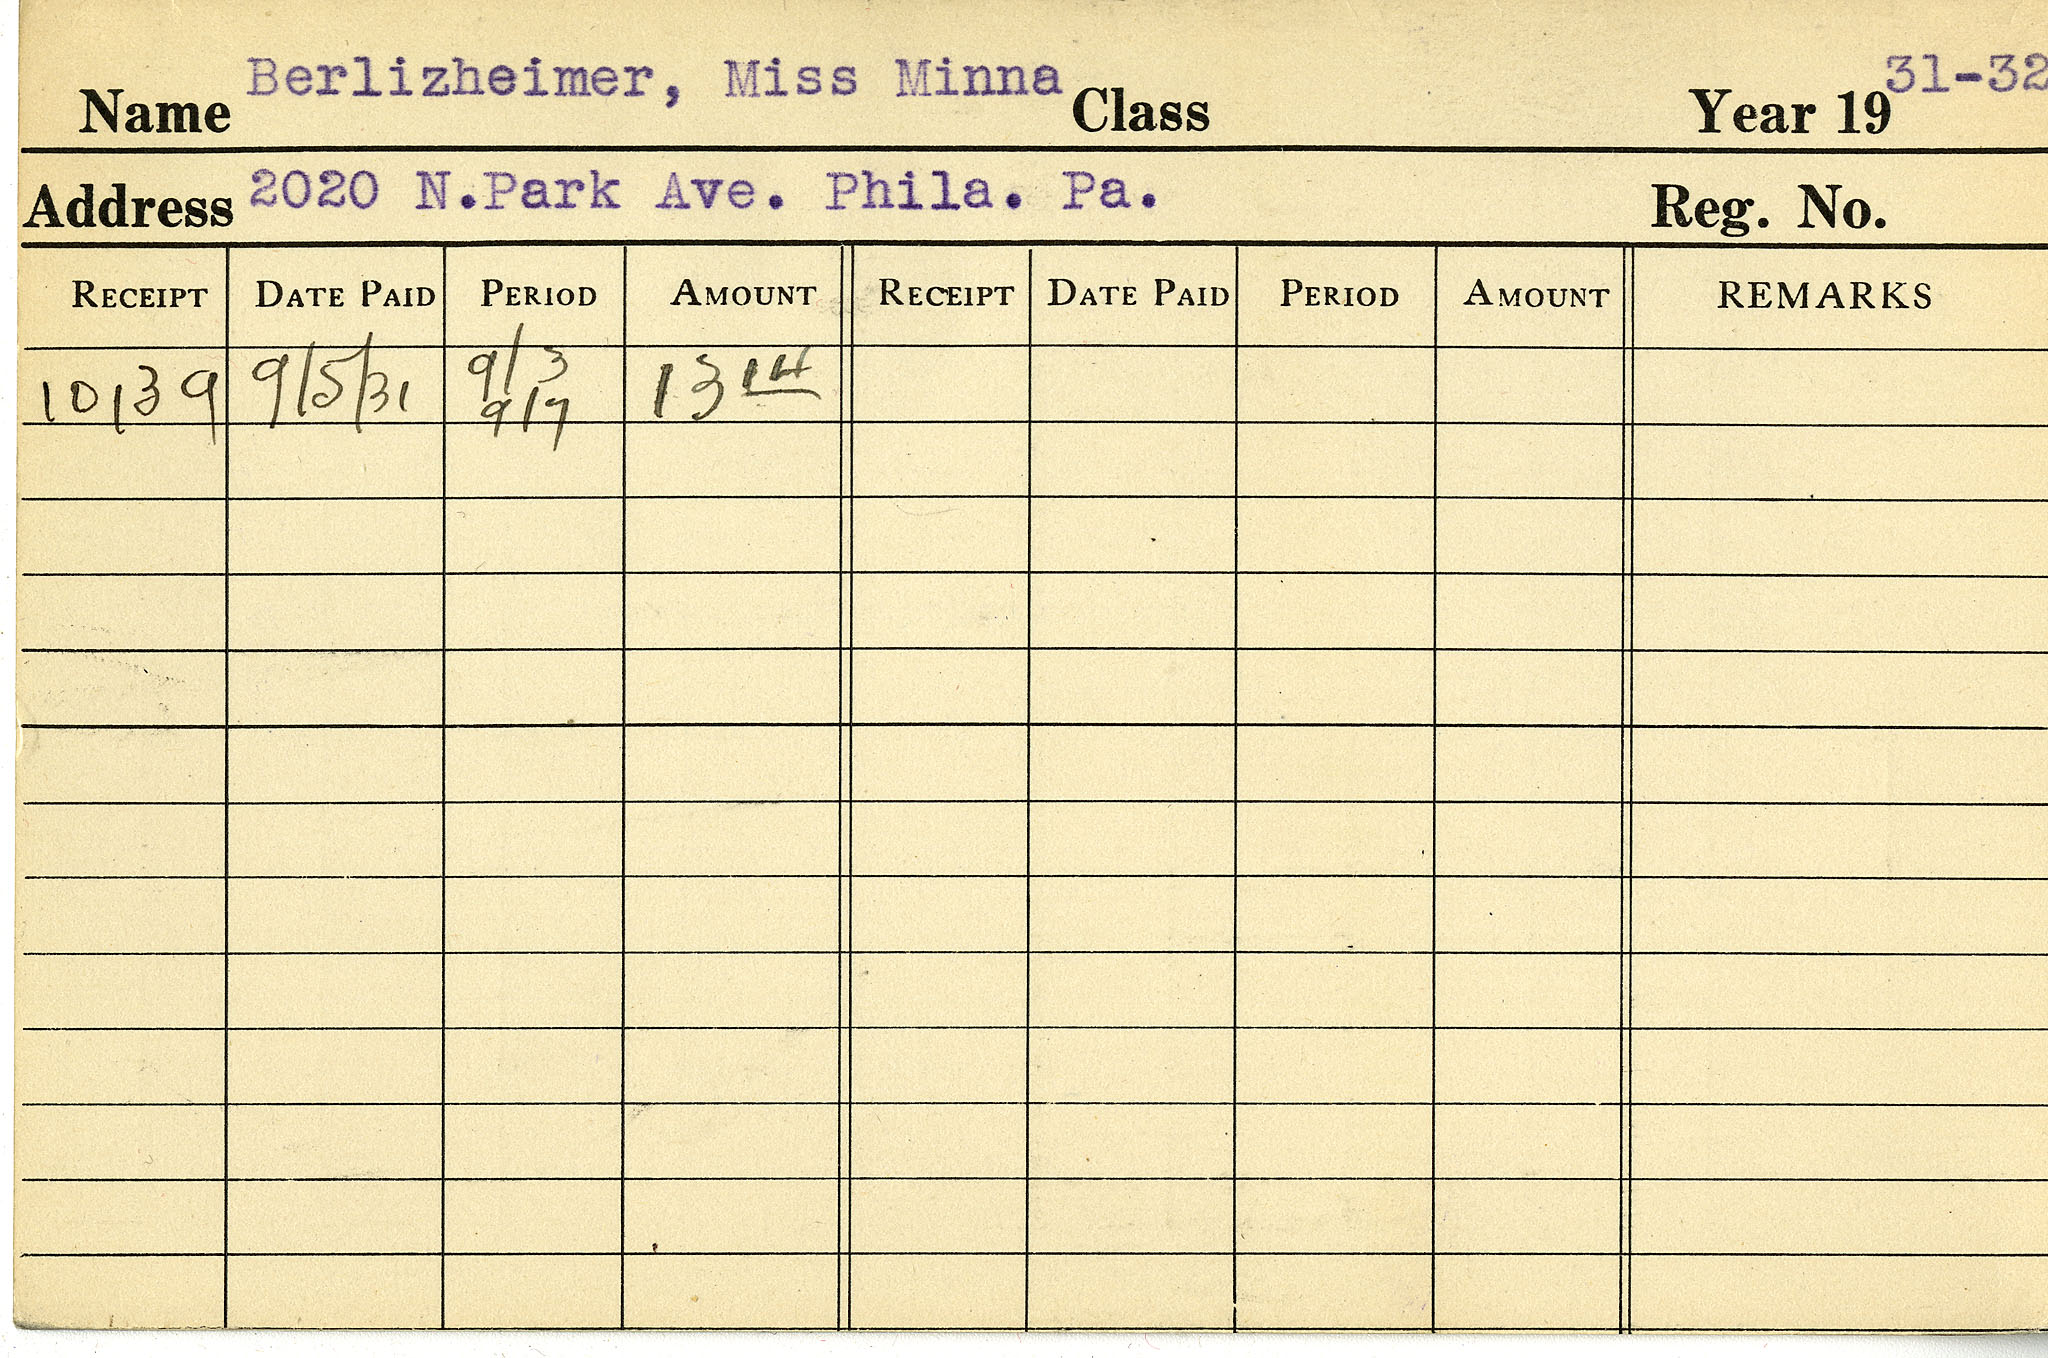 Name Berlizheimer, Miss Minna Class Year 19 31-32
Address 2020 N.Park Ave. Phila. Pa. Reg. No.
RECEIPT DATE PAID PERIOD AMOUNT RECEIPT DATE PAID PERIOD AMOUNT REMARKS
10139 9/5/31 9/3 13 14
9/7